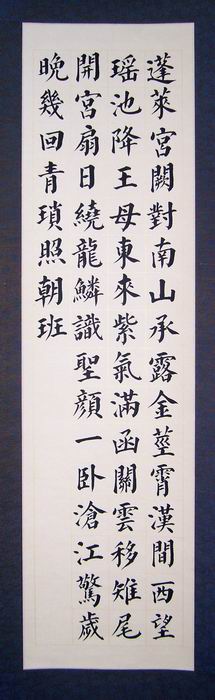 蓬萊宮闕對南山承露金莖霄漢間西望
瑶池降王母東來紫氣滿函關雲移雉尾
開宮扇日繞龍鱗識聖顏一卧滄江驚歲
晚幾回青瑣照朝班